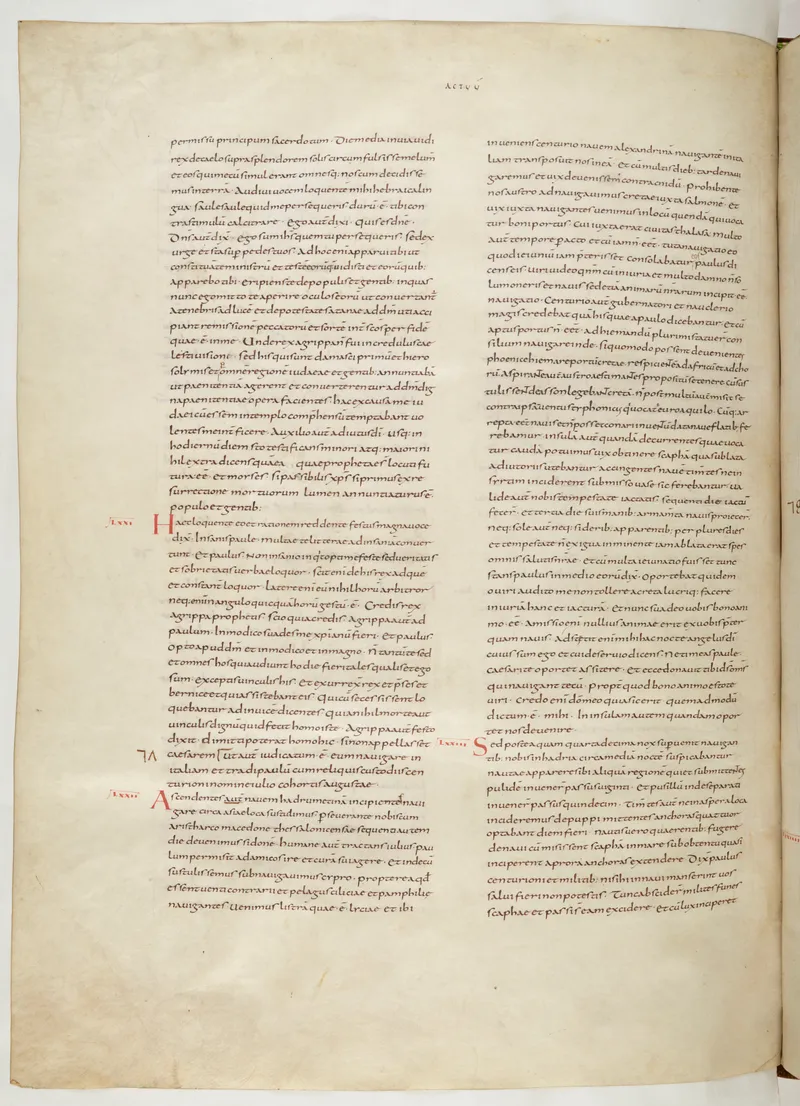 ACTUŪ
permissu principum sacerdotum· Die media in uia uidi
rex de caelo supra splendorem solis circumfulsisse me lum̄
et eos qui mecū simul erant omnesq; nos cum decidissē
mus in terrā· Audiui uocem loquentē mihi hebraica lin
gua· saule saule quid me persequeris durū· ē· tibi con
tra stimulū calcitrare· Ego aut̄ dixi· qui es dn̄e·
Dn̄s aut̄ dix̄· ego sum ihs quem tu persequeris· sed ex
urge et sta sup pedes tuos· Ad hoc eni apparui tibi ut
constituā te ministrū et testē eorū quae uidisti et eorū quib:
apparebo tibi· eripiens te de populis et gentib: in quas
nunc ego mitto te aperire oculos eorū ut conuertant̄
a tenebris ad lucē et de potestate satanae ad dm̄ ut acci
piant remissionē peccatorū et sortē int̄ scōs per fidē
quae· ē· in me· Unde rex agrippa n̄ fui incredulus cae
lesti uisione· sed his qui sunt damasci primū et hiero
solymis et in omnē regionē iudaeae et gentib: annuntiabā
ut paenitentiā agerent et conuerterentur ad dm̄ dig
na paenitentiae opera facientes· hac ex causa me iu
daei cū essem in templo comphensū temptabant uo
lentes me interficere· Auxilio aut̄ adiutus dī· usq; in
hodiernū diem sto testificans minori atq; maiori ni
hil extra dicens quā ea quae prophetae sŧ locuti fu
tura eē· et moyses· si passibilis xps si primus ex re
surrectione mortuorum lumen annuntiaturus ē·
populo et gentib:
LXXI
Haec loquente eo et rationem reddente festus magna uoce
dix̄· Insanis paule· multae te litterae ad insaniā conuer
tunt· Et paulus· Non insanio inq̄t optime feste sed ueritatis
et sobrietatis uerba eloquor· scit enī de his rex ad quē
et constant̄ loquor· Latere enī eū nihil horū arbitror
neq; enī in angulo quicquā horū gestū· ē· Credis rex
agrippa prophetis· scio quia credis· Agrippa aut̄ ad
paulum· In modico suades me xpianū fieri· Et paulus·
opto apud dm̄ et in modico et in magno· n̄ tantū te sed
et omnes hos qui audiunt hodie fieri tales qualis et ego
sum· exceptis uinculis his· Et exurrex̄ rex et pṣ̄es et
bernice et qui assistebant eis· Qui cū secessissent lo
quebantur ad inuicē dicentes quia nihil morte aut
uinculis dignū quid fecit homo iste· Agrippa aut̄ festo
dixit· dimitti poterat homo hic· si non appellasset
caesarem Ut aut̄ iudicatum· ē· eum nauigare in
italiam et tradi paulū cum reliquis custodiis cen
turioni nomine iulio cohortis augustae·
LXXII
Ascendentes aut̄ nauem hadrumetinā incipientē naui
gare circa asiae loca sustulimus pseuerante nobiscum
aristharco macedone thessalonicense sequenti autem
die deuenimus sidonē· humane aut̄ tractans iulius pau
lum permisit ad amicos ire et curā sui agere· Et inde cū
sustulissemus subnauigauimus cypro· propterea qđ
essent uenti contrarii et pelagus ciliciae et pamphiliae
nauigantes uenimus listrā quae· ē· lyciae et ibi
inueniens centurio nauem alexandrinā nauigantē in ita
liam transposuit nos in eā· Et cū multis dieb: tarde naui
garemus et uix deuenissem̄ contra cnidū· prohibente
nos uento adnauigauimus cretae iuxta salmonē· Et
uix iuxta nauigantes uenimus in locū quendā qui uoca
tur boni portus· Cui iuxta erat ciuitas thalasa multo
aut̄ tempore pacto et cū iam n̄ eēt· tuta nauigatio eo
quod ieiuniū iam pterisset consolabatur paulus di
cens eis· uiri uideo qm̄ cū iniuria et multo damno non so
lum oneris et nauis sed etiā animarū nr̄arum incipit eē·
nauigatio· Centurio aut̄ gubernatori et nauclerio
magis credebat quā his quae a paulo dicebantur· et cū
aptus portus n̄ eēt· ad hiemandū plurimi statuer̄ con
silium nauigare inde· si quomodo possent deuenientes
phoenice hiemare portū cretae· respicientē ad africū et ad cho
rū· Aspirante aut̄ austro aestimantes propositū se tenere cū sus
tulissent de asson legebant cretā· n̄ post multū aut̄ misit se
contra ipsā uentus typhonicus qui uocat̄ euroaquilo· Cūq; ar
repta eēt nauis et n̄ posset conari in uentū data naue flatib: fe
rebamur· insulā aut̄ quandā decurrentes quae uoca
tur cauda potuimus uix obtinere scaphā qua sublata
adiutoriis utebantur accingentes nauē timentes ne in
syrtim inciderent summisso uase sic ferebantur· ua
lide aut̄ nobis tempestate iactatis· sequenti die iactū
fecer̄· et tertia die suis manib: armamta nauis proiecer̄·
neq; sole aut̄ neq; siderib: apparentib: per plures dies
et tempestate n̄ exigua imminente iam ablata erat spes
omnis salutis nr̄ae· Et cū multa ieiunatio fuisset tunc
stans paulus in medio eorū dix̄· oportebat quidem
o uiri audito me non tollere a creta lucriq; facere
iniuriā hanc et iacturā· Et nunc suadeo uobis bono ani
mo· eē· Amissio enī nullius animae erit ex uobis pter
quam nauis· Adstitit enī mihi hac nocte angelus dī
cuius sum ego et cui deseruio dicens· Ne timeas paule·
caesari te oportet assistere· Et ecce donauit tibi ds om̄s
qui nauigant tecū· propt̄ quod bono animo estote
uiri· Credo enī dō meo quia sic erit quemadmodū
dictum· ē· mihi· In insulam autem quandam opor
tet nos deuenire·
LXXIII
Sed posteaquam quartadecima nox supuenit nauigan
tib: nobis in hadria circa mediā noctē suspicabantur
nautae apparere sibi aliquā regionē qui et submittentes
bolidē inuener̄ passus uiginti· Et pusillū inde separati
inuener̄ passus quindecim· Timentes aut̄ ne in aspera loca
incideremus de puppi mittentes anchoras quattuor
optabant diem fieri· nautis uero quaerentib: fugere
de naui cū misissent scaphā in mare sub obtentu quasi
inciperent a prora anchoras extendere· Dix̄ paulus
centurioni et militib: nisi hi in naui manserint uos
salui fieri non potestis· Tunc absciderunt milites funes
scaphae et passi sŧ eam excidere· Et cū lux inciperet